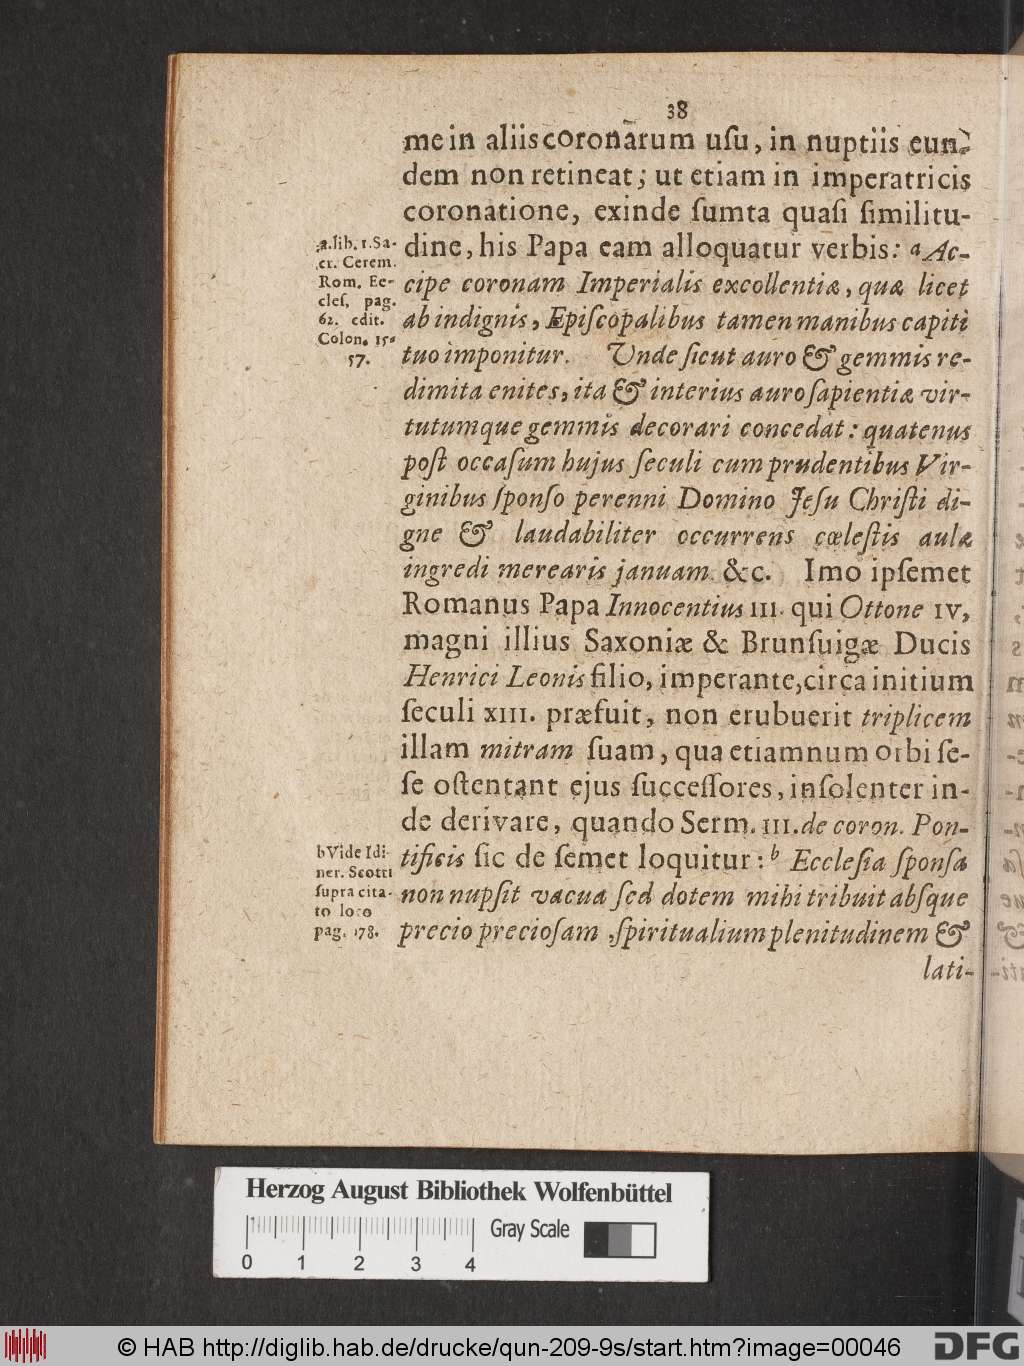 38
me in aliis coronarum uſu, in nuptiis eun-
dem non retineat; ut etiam in imperatricis
coronatione, exinde ſumta quaſi ſimilitu-
dine, his Papa eam alloquatur verbis: a Ac-
cipe coronam Imperialis excollentiæ, quæ licet
ab indignis, Epiſcopalibus tamen manibus capiti
tuo imponitur. Unde ſicut auro & gemmis re-
dimita enites, ita & interius auro ſapientiæ vir-
tutumque gemmis decorari concedat: quatenus
poſt occaſum hujus ſeculi cum prudentibus Vir-
ginibus ſponſo perenni Domino Jeſu Chriſti di-
gne & laudabiliter occurrens cœleſtis aulæ
ingredi merearis januam. &c. Imo ipſemet
Romanus Papa Innocentius III. qui Ottone IV,
magni illius Saxoniæ & Brunſuigæ Ducis
Henrici Leonis filio, imperante, circa initium
ſeculi XIII. præfuit, non erubuerit triplicem
illam mitram ſuam, qua etiamnum orbi ſe-
ſe oſtentant ejus ſucceſſores, inſolenter in-
de derivare, quando Serm. III. de coron. Pon-
tificis ſic de ſemet loquitur: b Eccleſia ſponſa
non nupſit vacua ſed dotem mihi tribuit abſque
precio precioſam, ſpiritualium plenitudinem &
lati-
a. lib. 1. Sa-
cr. Cerem.
Rom. Ec-
cleſ. pag.
62. edit.
Colon. 15-
57.
b Vide Idi-
ner. Scotti
ſupra cita-
to loco
pag. 178.
Herzog August Bibliothek Wolfenbüttel
Gray Scale
0 1 2 3 4
© HAB http://diglib.hab.de/drucke/qun-209-9s/start.htm?image=00046
DFG